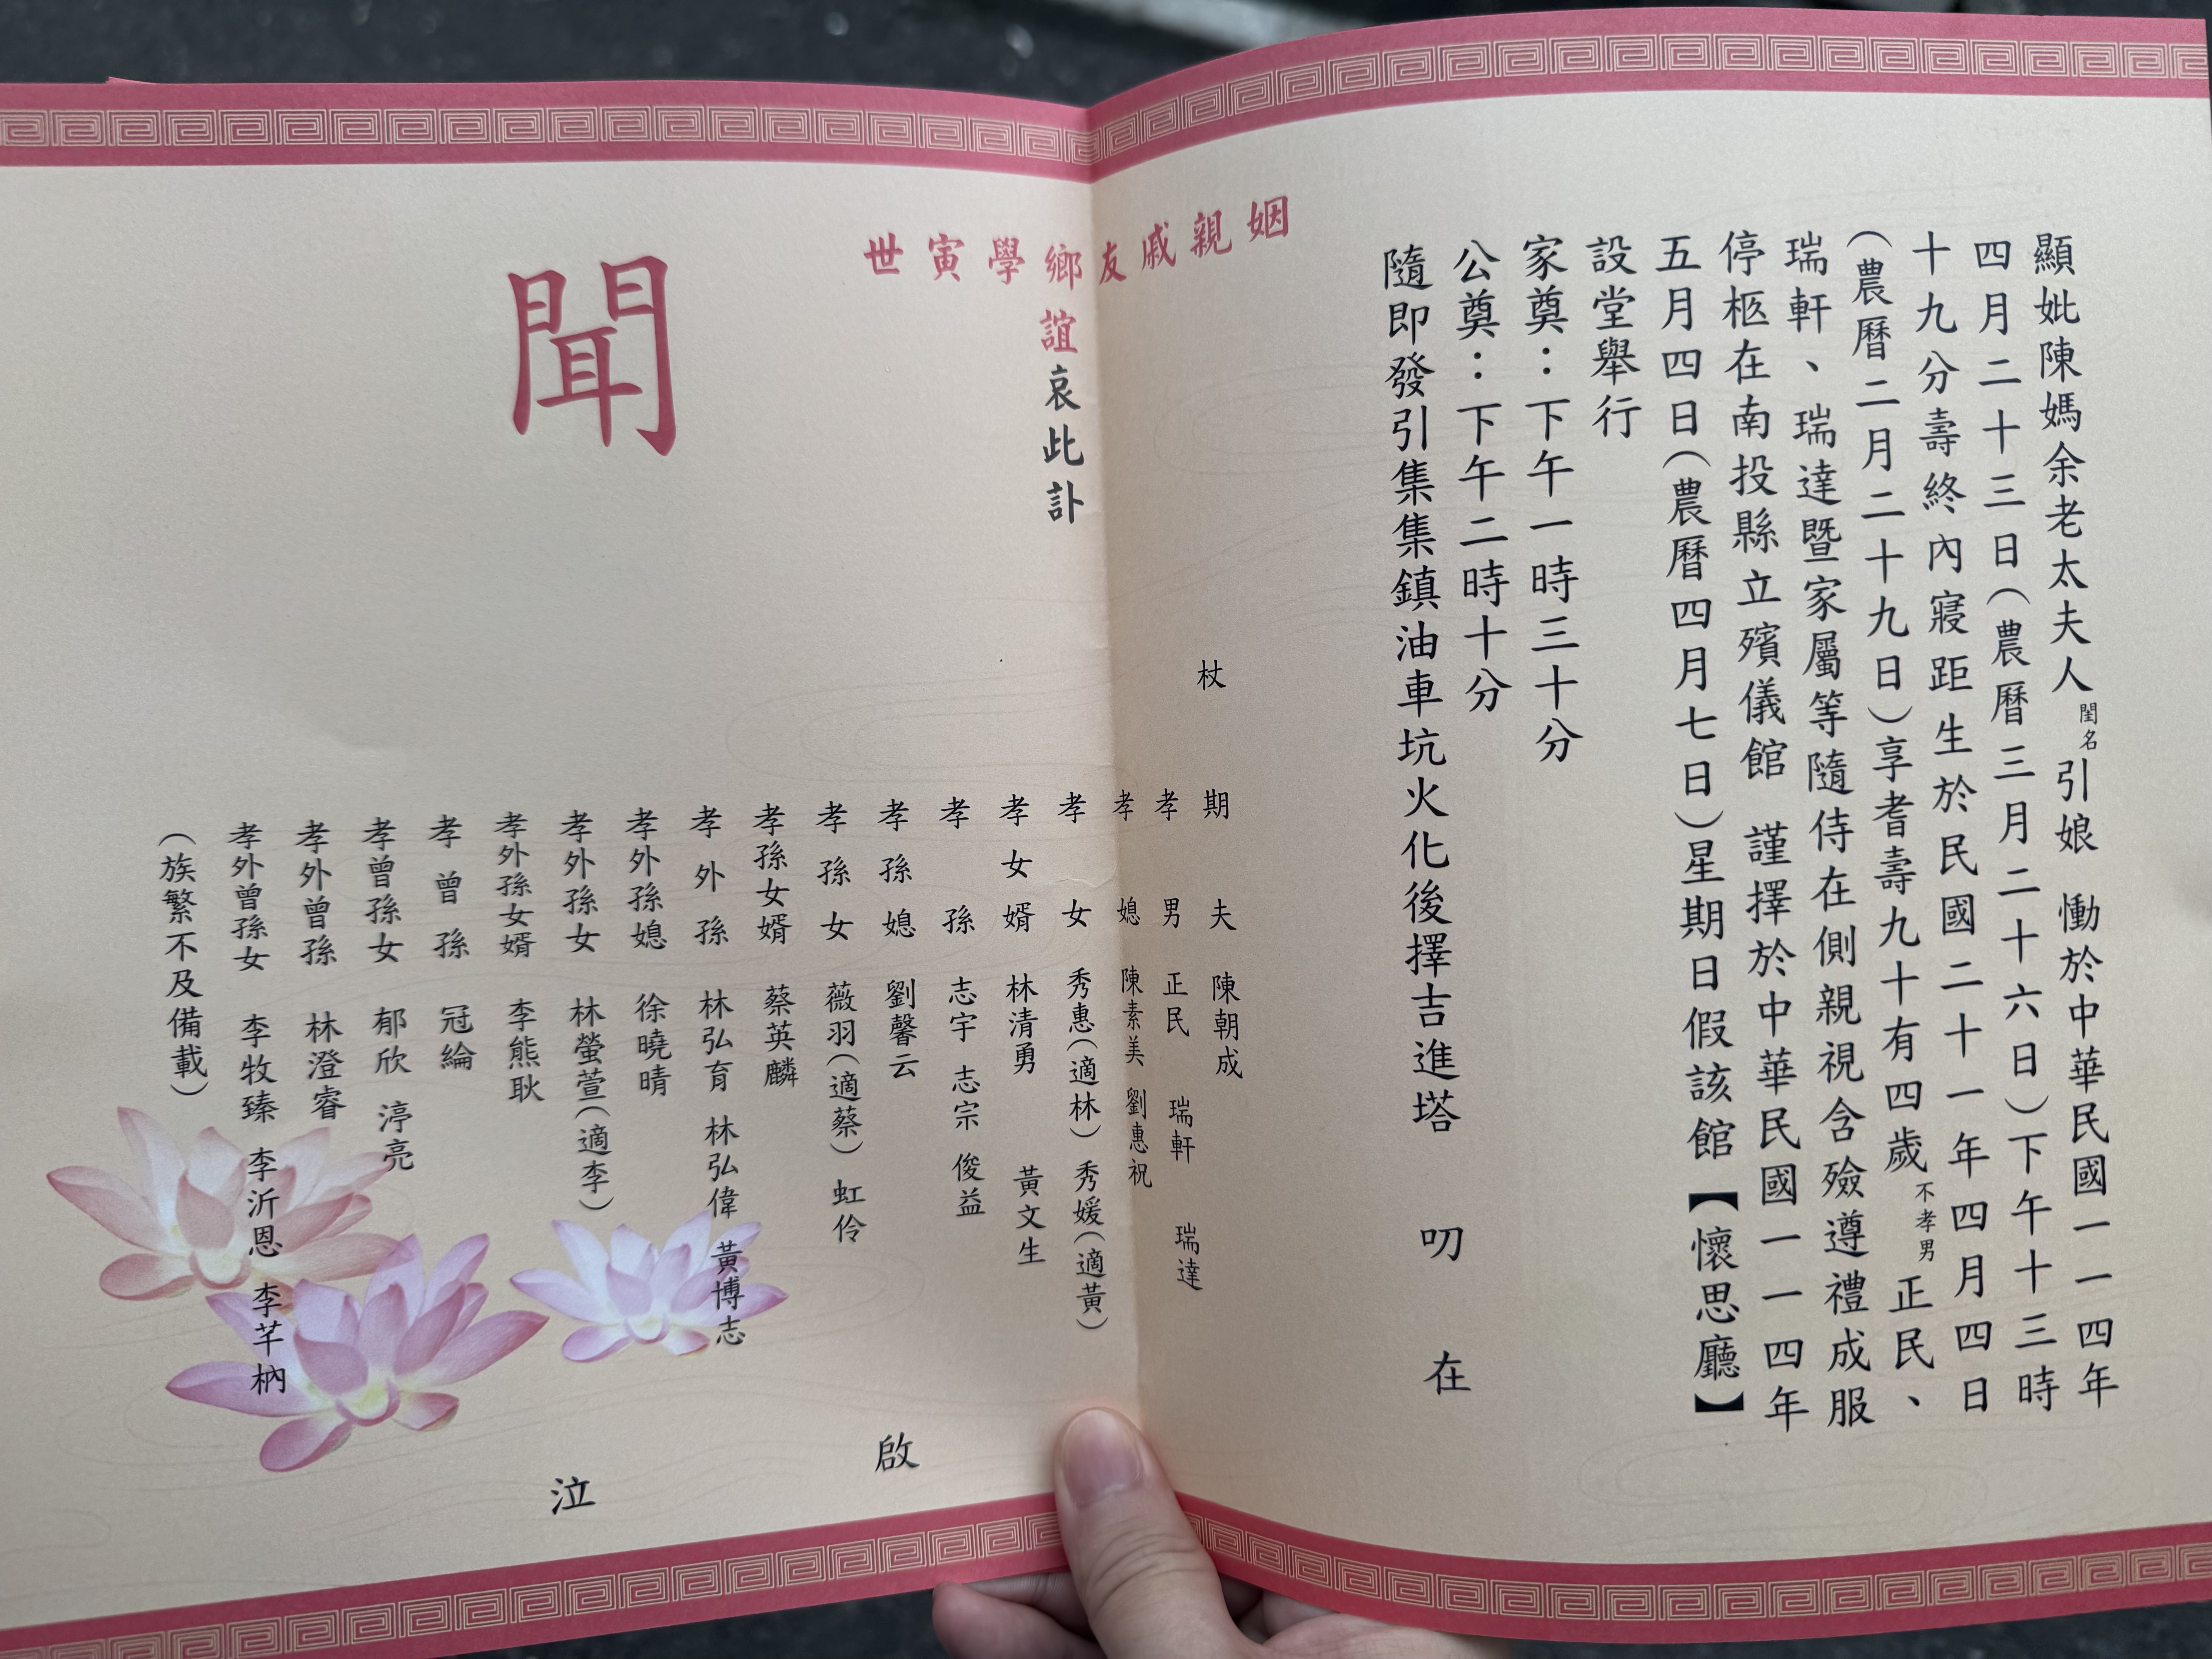 顯妣陳媽余老太夫人閨名引娘 慟於中華民國一一四年
四月二十三日(農曆三月二十六日)下午十三時
十九分壽終內寢距生於民國二十一年四月四日
(農曆二月二十九日)享耆壽九十有四歲不孝男正民、
瑞軒、瑞達暨家屬等隨侍在側親視含殮遵禮成服
停柩在南投縣立殯儀館 謹擇於中華民國一一四年
五月四日(農曆四月七日)星期日假該館【懷思廳】
設堂舉行
家奠:下午一時三十分
公奠:下午二時十分
隨即發引集集鎮油車坑火化後擇吉進塔 叨在
姻親戚友鄉學寅世
誼哀此訃
聞
杖期夫 陳朝成
孝男 正民 瑞軒 瑞達
孝媳 陳素美 劉惠祝
孝女 秀惠(適林) 秀媛(適黃)
孝女婿 林清勇 黃文生
孝孫 志宇 志宗 俊益
孝孫媳 劉馨云
孝孫女 薇羽(適蔡) 虹伶
孝孫女婿 蔡英麟
孝外孫 林弘育 林弘偉 黃博志
孝外孫媳 徐曉晴
孝外孫女 林螢萱(適李)
孝外孫女婿 李熊耿
孝曾孫 冠綸
孝曾孫女 郁欣 渟亮
孝外曾孫 林澄睿
孝外曾孫女 李牧臻 李沂恩 李芊枘
(族繁不及備載)
泣 啟